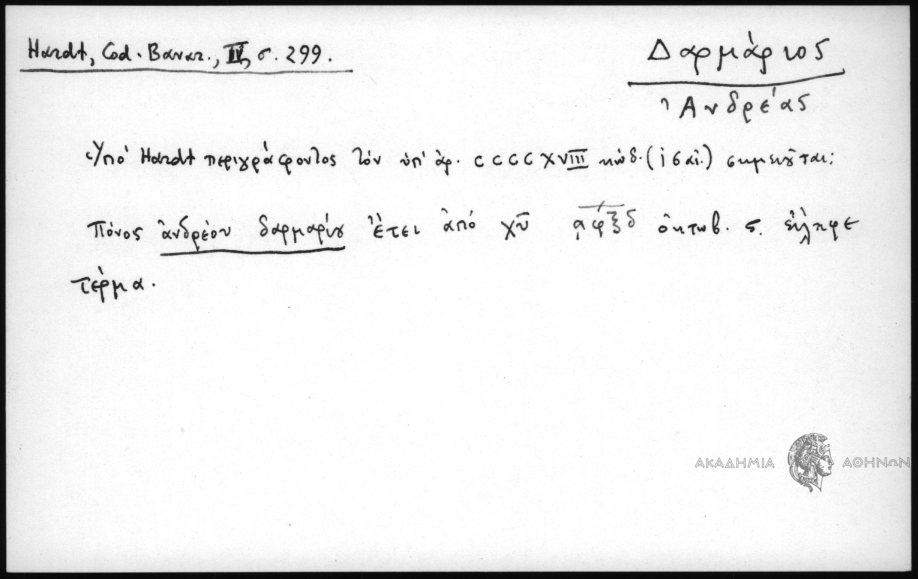 Hardt, Cod. Bavar., IV, σ. 299.
Δαρμάριος
Ἀνδρέας
Ὑπό Hardt περιγράφοντος τόν ὑπ' ἀρ. CCCCXVIII κώδ. (ις αἰ.) σημειοῦται:
Πόνος ἀνδρέου δαρμαρίου ἔτει ἀπό χυ ͵αφξδ ὀκτωβ. ς. εἴληφε
τέρμα.
ΑΚΑΔΗΜΙΑ ΑΘΗΝΩΝ